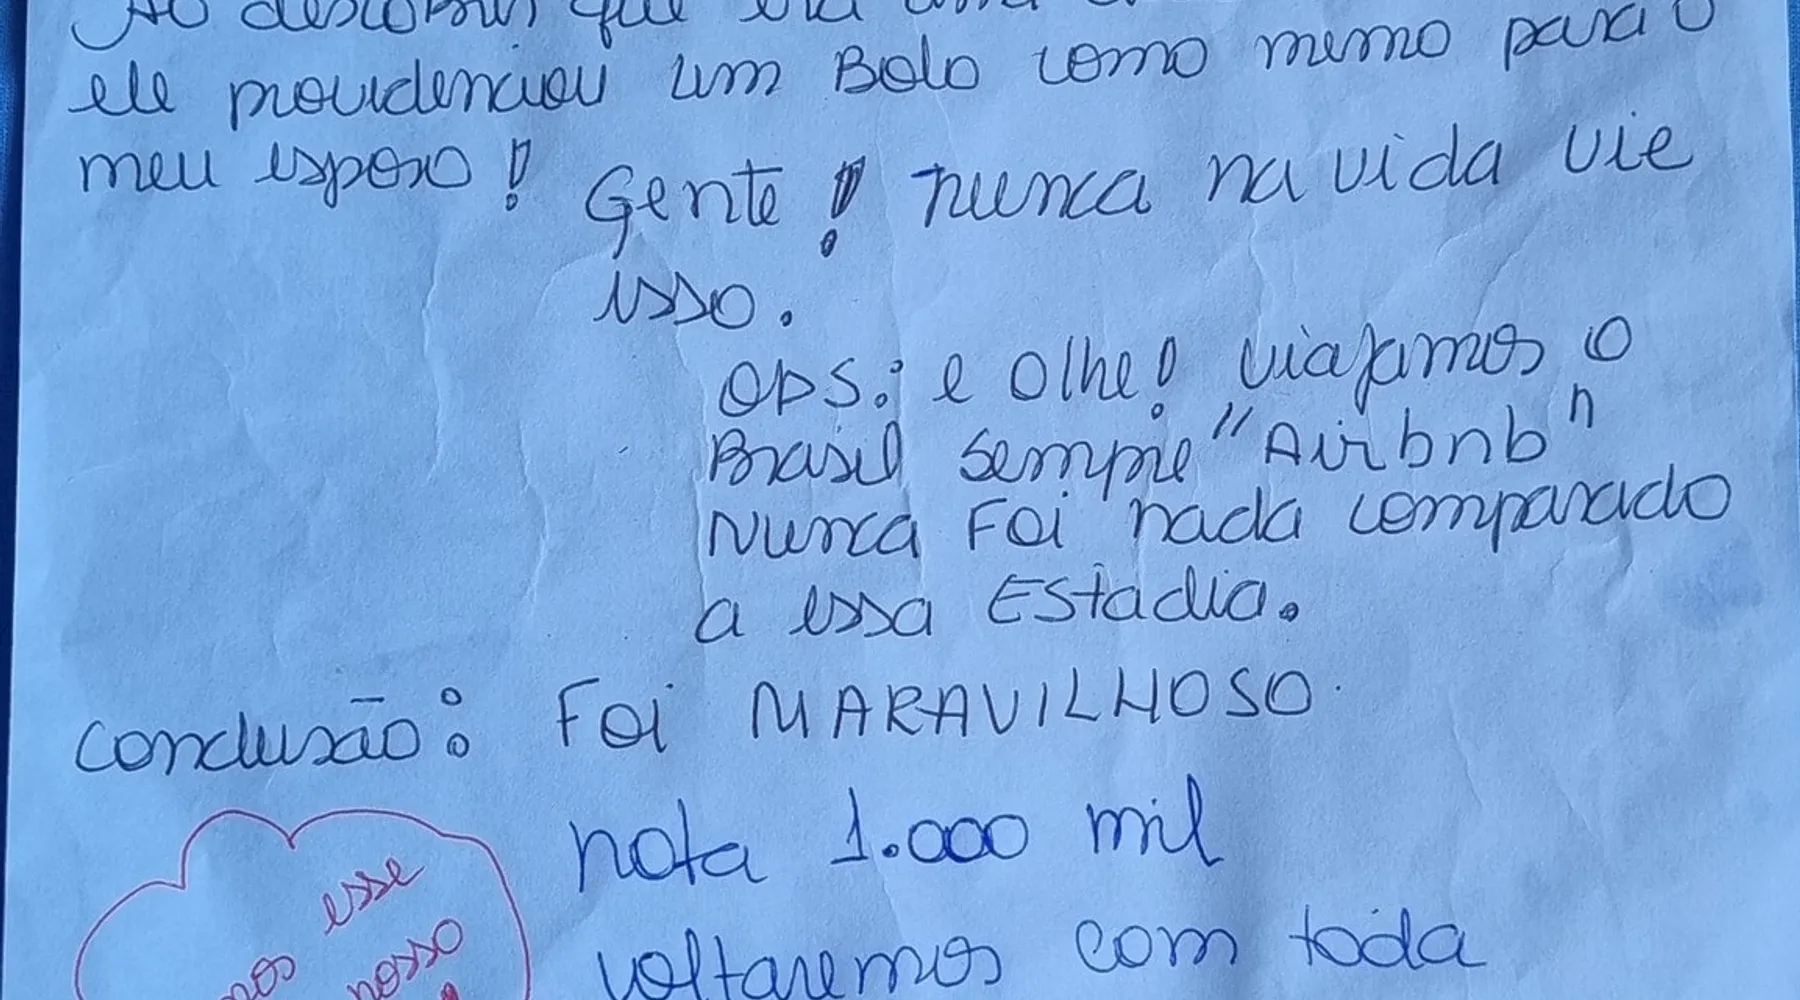 Ao descobrir que era uma
ele providenciou um Bolo como mimo para o
meu esposo!
Gente! nunca na vida vie
isso.
OPS: e olhe! viajamos o
Brasil sempre "Airbnb"
Nunca Foi nada comparado
a essa Estadia.
Conclusão: Foi MARAVILHOSO.
nota 1.000 mil
esse
nosso
voltaremos com toda